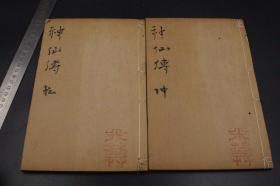 神仙傳 乾
神仙傳 坤